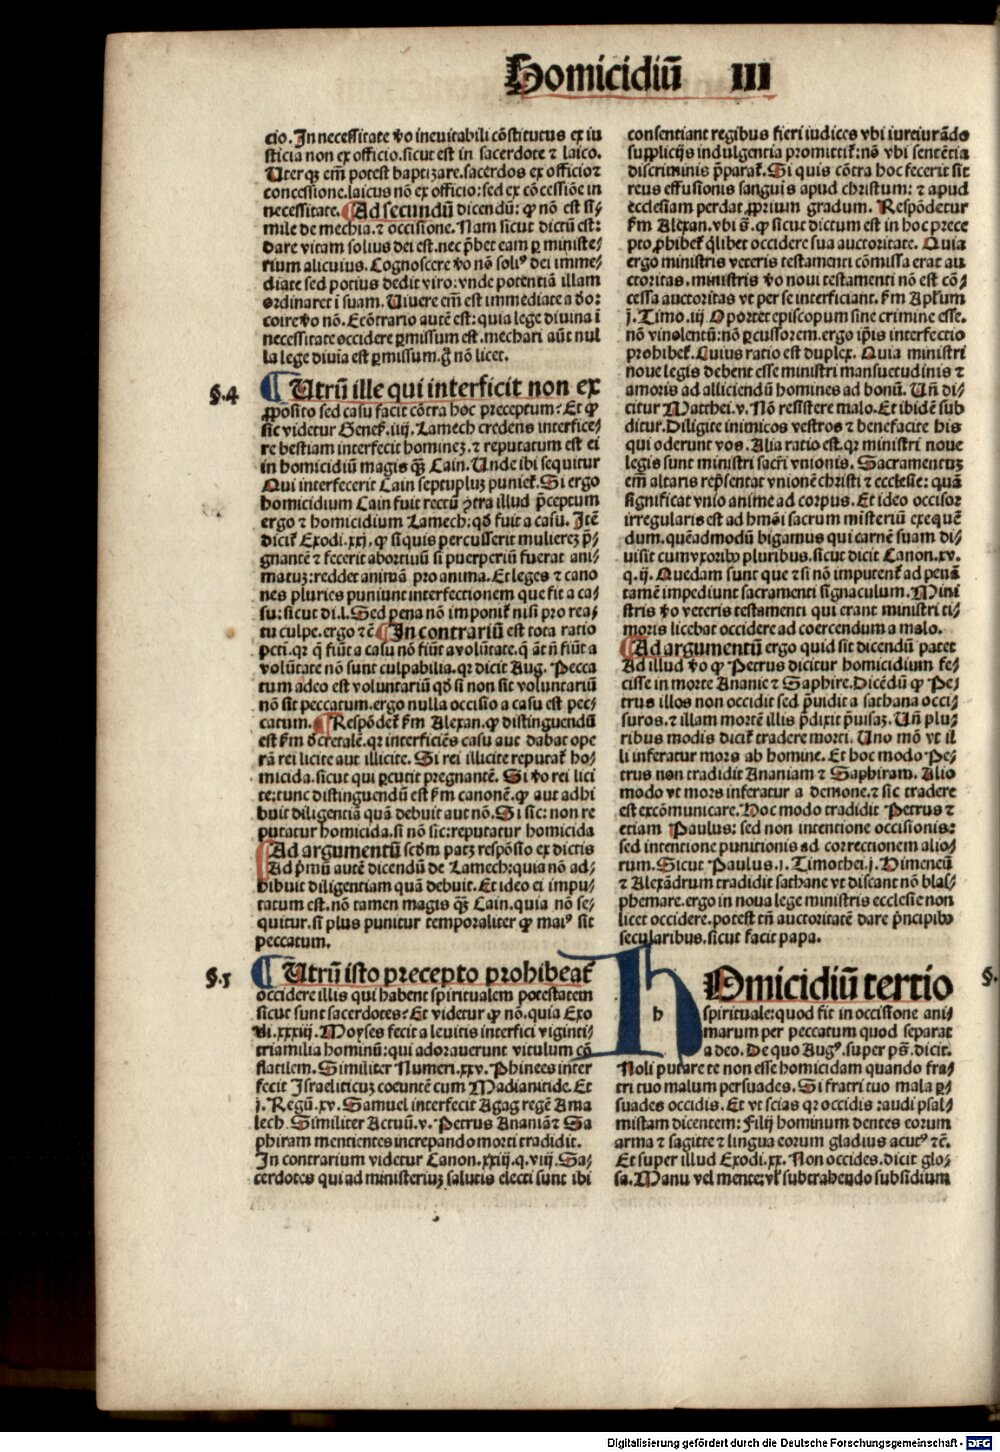 Homicidiū III
cio. In necessitate v̄o ineuitabili cōstitutus ex iu
sticia non ex officio. sicut est in sacerdote ⁊ laico.
Uterqꝫ em̄ potest baptizare. sacerdos ex officio ⁊
concessione. laicus nō ex officio: sed ex cōcessiōe in
necessitate. ¶ Ad secundū dicendū: ꝙ nō est si⸗
mile de mechia. ⁊ occisione. Nam sicut dictū est:
dare vitam solius dei est. nec p̄bet eam ꝑ ministe⸗
rium alicuius. Cognoscere v̄o nō soliꝰ dei imme⸗
diate sed potius dedit viro: vnde potentiā illam
ordinaret ī suam. Uiuere em̄ est immediate a deo:
coire v̄o nō. Econtrario autē est: quia lege diuina ī
necessitate occidere ꝑmissum est. mechari aūt nul
la lege diuīa est ꝑmissum. g̊ nō licet.
§.4 ¶ Utrū ille qui interficit non ex
ꝓposito sed casu facit cōtra hoc preceptum: Et ꝙ
sic videtur Genes̄. iiij. Lamech credens interfice⸗
re bestiam interfecit homineꝫ. ⁊ reputatum est ei
in homicidiū magis qꝫ̄ Cain. Unde ibi sequitur
Qui interfecerit Cain septupluꝫ punieť. Si ergo
homicidium Cain fuit rectū ꝯtra illud p̄ceptum
ergo ⁊ homicidium Lamech: qd̄ fuit a casu. Itē
diciť Exodi. xxj. ꝙ si quis percusserit muliereꝫ p̄⸗
gnantē ⁊ fecerit abortiuū si puerperiū fuerat ani⸗
matuꝫ: reddet animā pro anima. Et leges ⁊ cano
nes pluries puniunt interfectionem que fit a ca⸗
su: sicut di. l. Sed pena nō imponiť nisi pro rea⸗
tu culpe. ergo ⁊c̄ ¶ In contrariū est tota ratio
pcti. qr q̄ fiūt a casu nō fiūt a volūtate. q̄ āt n̄ fiūt a
volūtate nō sunt culpabilia. qr dicit Aug. Pecca
tum adeo est voluntariū qd̄ si non sit voluntariū
nō sit peccatum. ergo nulla occisio a casu est pec⸗
catum. ¶ Respōdeť ẜm Alexan. ꝙ distinguendū
est ẜm d̄cretalē. qr interficiēs casu aut dabat ope
rā rei licite aut illicite. Si rei illicite reputať ho⸗
micida. sicut qui ꝑcutit pregnantē. Si v̄o rei lici
te: tunc distinguendū est ẜm canonē. ꝙ aut adhi
buit diligentiā quā debuit aut nō. Si sic: non re
putatur homicida. si nō sic: reputatur homicida
¶ Ad argumentū scd̄m patꝫ respōsio ex dictis
Ad p̄mū autē dicendū de Lamech: quia nō ad⸗
hibuit diligentiam quā debuit. Et ideo ei impu⸗
tatum est. nō tamen magis qꝫ̄ Cain. quia nō se⸗
quitur. si plus punitur temporaliter ꝙ maiꝰ sit
peccatum.
§.5 ¶ Utrū isto precepto prohibeať
occidere illis qui habent spiritualem potestatem
sicut sunt sacerdotes: Et videtur ꝙ nō. quia Exo
di. xxxiij. Moyses fecit a leuitis interfici viginti⸗
triamilia hominū: qui adorauerunt vitulum cō
flatilem. Similiter Numeri. xxv. Phinees inter
fecit Israeliticuꝫ coeuntē cum Madianitide. Et
j. Regū. xv. Samuel interfecit Agag regē Ama
lech. Similiter Actuū. v. Petrus Ananiā ⁊ Sa
phiram mentientes increpando morti tradidit.
In contrarium videtur Canon. xxiij. q. viij. Sa⸗
cerdotes qui ad ministeriuꝫ salutis electi sunt ibi
consentiant regibus fieri iudices vbi iureiurādo
suppliciis indulgentia promittiť: nō vbi sentētia
discriminis p̄parať. Si quis cōtra hoc fecerit sit
reus effusionis sanguis apud christum: ⁊ apud
ecclesiam perdat ꝓprium gradum. Respōdetur
ẜm Alexan. vbi s̄. ꝙ sicut dictum est in hoc prece
pto ꝓhibeť q̄libet occidere sua auctoritate. Quia
ergo ministris veteris testamenti cōmissa erat au
ctoritas. ministris v̄o noui testamenti nō est cō⸗
cessa auctoritas vt per se interficiant. ẜm Apl̄um
j. Timo. iij. Oportet episcopum sine crimine esse.
nō vinolentū: nō ꝑcussorem. ergo ip̄is interfectio
prohibeť. Cuius ratio est duplex. Quia ministri
noue legis debent esse ministri mansuetudinis ⁊
amoris ad alliciendū homines ad bonū. Un̄ di⸗
citur Matthei. v. Nō resistere malo. Et ibidē sub
ditur. Diligite inimicos vestros ⁊ benefacite his
qui oderunt vos. Alia ratio est. qꝛ ministri noue
legis sunt ministri sacri vnionis. Sacramentuꝫ
em̄ altaris rep̄sentat vnionē christi ⁊ ecclesie: quā
significat vnio anime ad corpus. Et ideo occisor
irregularis est ad hmōi sacrum misteriū exequē
dum. quēadmodū bigamus qui carnē suam di⸗
uisit cum vxoribꝰ pluribus. sicut dicit Canon. xv.
q. ij. Quedam sunt que ⁊ si nō imputenť ad penā
tamē impediunt sacramenti signaculum. Mini
stris v̄o veteris testamenti qui erant ministri ti⸗
moris licebat occidere ad coercendum a malo.
¶ Ad argumentū ergo quid sit dicendū patet
Ad illud v̄o ꝙ Petrus dicitur homicidium fe⸗
cisse in morte Ananie ⁊ Saphire. Dicēdū ꝙ Pe⸗
trus illos non occidit sed p̄uidit a sathana occi⸗
suros. ⁊ illam mortē illis p̄dixit p̄uisaꝫ. Un̄ plu⸗
ribus modis diciť tradere morti. Uno mō vt il
li inferatur mors ab homine. Et hoc modo Pe⸗
trus non tradidit Ananiam ⁊ Saphiram. Alio
modo vt mors inferatur a demone. ⁊ sic tradere
est excōmunicare. Hoc modo tradidit Petrus ⁊
etiam Paulus: sed non intentione occisionis:
sed intentione punitionis ad correctionem alio⸗
rum. Sicut Paulus. 1. Timothei. j. Himeneū
⁊ Alexādrum tradidit sathane vt discant nō blas⸗
phemare. ergo in noua lege ministris ecclesie non
licet occidere. potest tn̄ auctoritatē dare p̄ncipibꝰ
secularibus. sicut facit papa.
h Omicidiū tertio §.
spirituale: quod fit in occisione ani⸗
marum per peccatum quod separat
a deo. De quo Augꝰ. super ps̄. dicit.
Noli putare te non esse homicidam quando fra⸗
tri tuo malum persuades. Si fratri tuo mala ꝑ⸗
suades occidis. Et vt scias qꝛ occidis: audi psal⸗
mistam dicentem: Filij hominum dentes eorum
arma ⁊ sagitte ⁊ lingua eorum gladius acutꝰ ⁊c̄.
Et super illud Exodi. xx. Non occides. dicit glo⸗
sa. Manu vel mente: vl̓ subtrahendo subsidium
Digitalisierung gefördert durch die Deutsche Forschungsgemeinschaft - DFG